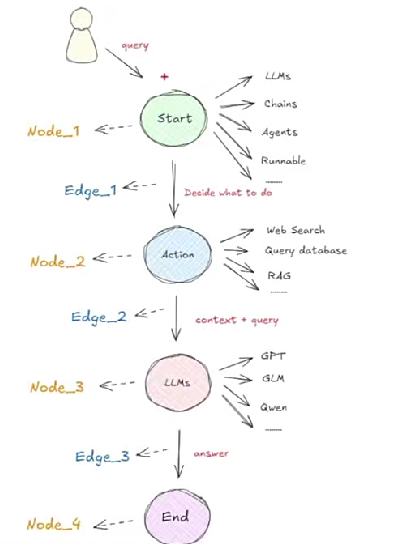 query
+
LLMs
Chains
Start
Node_1
Agents
Runnable
......
Edge_1
Decide what to do
Web Search
Query database
Action
Node_2
RAG
......
Edge_2
context + query
GPT
GLM
LLMs
Node_3
Qwen
......
Edge_3
answer
End
Node_4